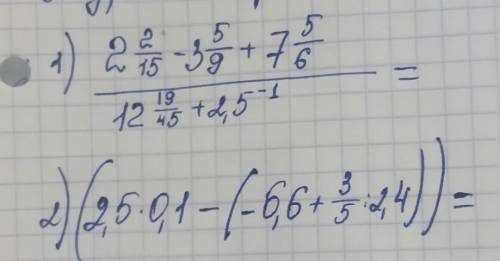 1) \frac{2\frac{2}{15} - 3\frac{5}{9} + 7\frac{5}{6}}{12\frac{19}{45} + 2,5^{-1}} =
2) (2,5 · 0,1 - (-6,6 + \frac{3}{5} : 2,4)) =